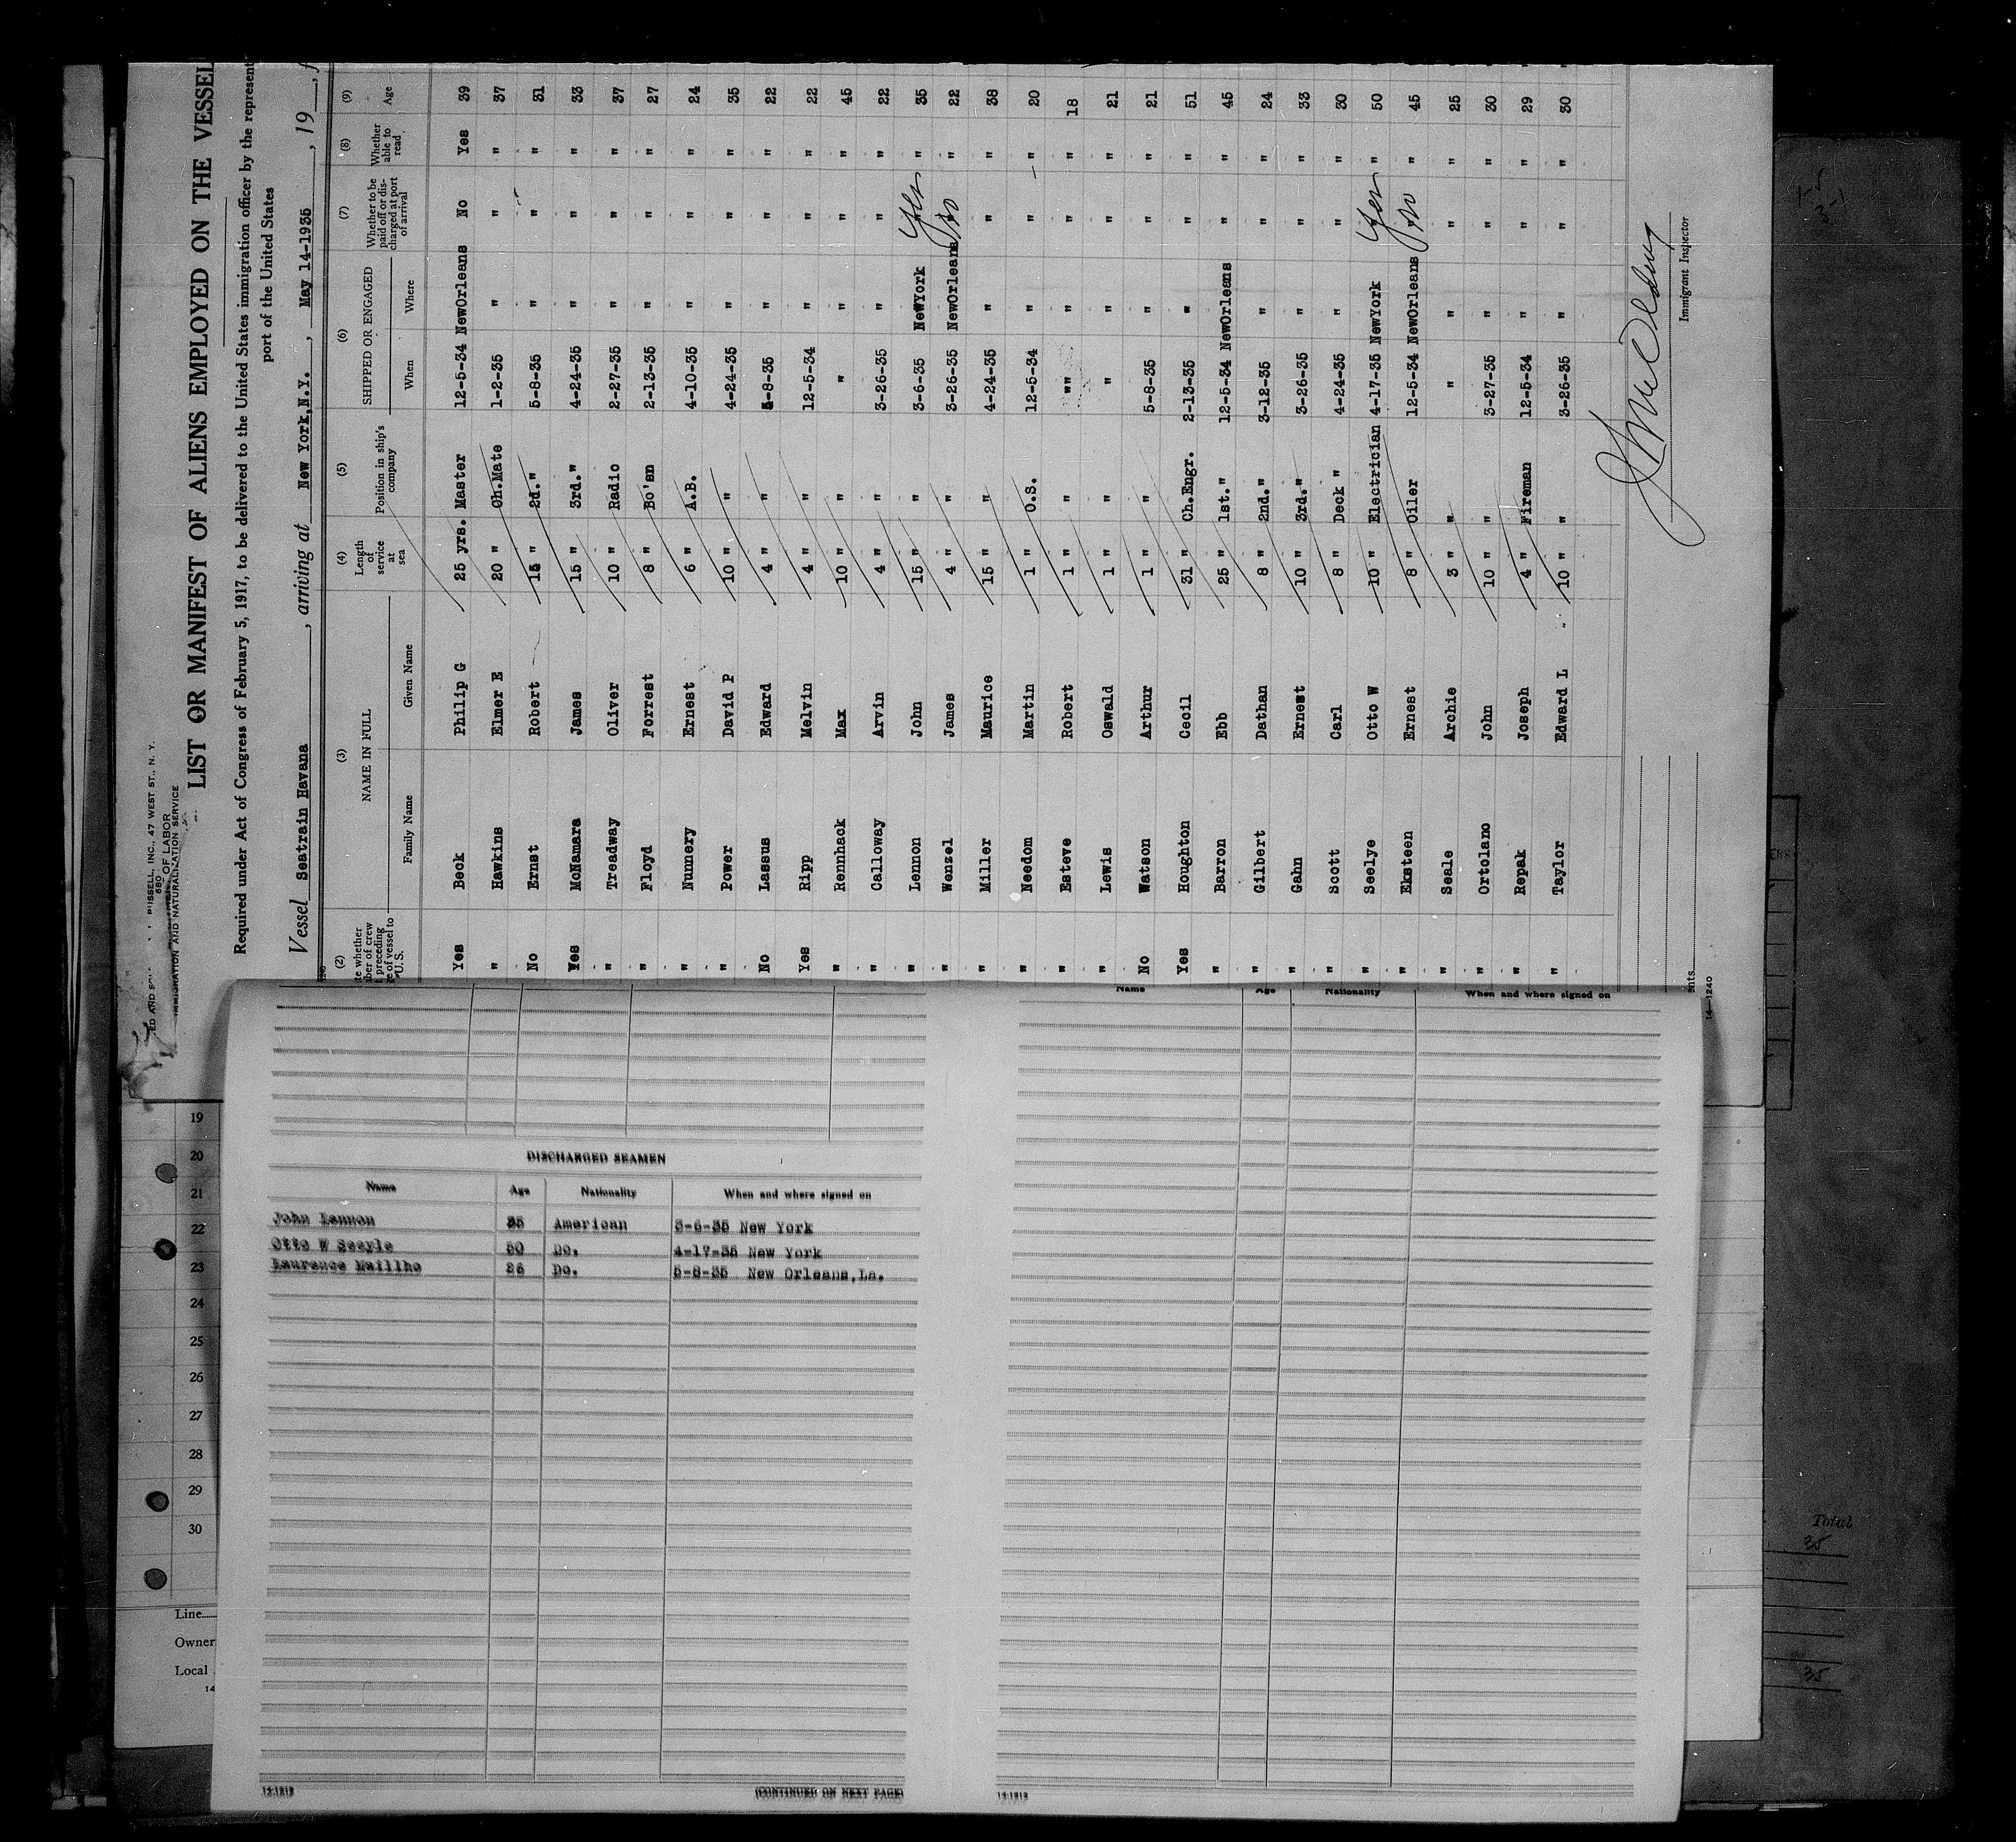 RUSSELL, INC., 47 WEST ST., N. Y.
680
OF LABOR
IMMIGRATION AND NATURALIZATION SERVICE
LIST OR MANIFEST OF ALIENS EMPLOYED ON THE VESSEL
Required under Act of Congress of February 5, 1917, to be delivered to the United States immigration officer by the represent
port of the United States
Vessel Seatrain Havana, arriving at New York,N.Y., May 14-1935, 19
(2) (3) (4) (5) (6) (7) (8) (9)
whether of crew preceding of vessel to U. S. NAME IN FULL Length of service at sea Position in ship's company SHIPPED OR ENGAGED Whether to be paid off or discharged at port of arrival Whether able to read Age
Family Name Given Name When Where
Yes Beck Philip G 25 yrs. Master 12-5-34 NewOrleans No Yes 39
" Hawkins Elmer E 20 " Ch.Mate 1-2-35 " " " 37
No Ernst Robert 15 " 2d." 5-8-35 " " " 31
Yes McNamara James 15 " 3rd." 4-24-35 " " " 33
" Treadway Oliver 10 " Radio 2-27-35 " " " 37
" Floyd Forrest 8 " Bo'sn 2-13-35 " " " 27
" Nunnery Ernest 6 " A.B. 4-10-35 " " " 24
" Power David P 10 " " 4-24-35 " " " 35
No Lassus Edward 4 " " 5-8-35 " " " 22
Yes Ripp Melvin 4 " " 12-5-34 " " " 22
" Rennhack Max 10 " " " " " " 45
" Calloway Arvin 4 " " 3-26-35 " " " 22
" Lennon John 15 " " 3-6-35 NewYork Yes " 35
" Wenzel James 4 " " 3-26-35 NewOrleans No " 22
" Miller Maurice 15 " " 4-24-35 " " " 38
" Needom Martin 1 " O.S. 12-5-34 " " " 20
" Esteve Robert 1 " " "" " " " 18
" Lewis Oswald 1 " " " " " " 21
No Watson Arthur 1 " " 5-8-35 " " " 21
Yes Houghton Cecil 31 " Ch.Engr. 2-13-35 " " " 51
" Barron Ebb 25 " 1st." 12-5-34 NewOrleans " " 45
" Gilbert Dathan 8 " 2nd." 3-12-35 " " " 24
" Gahn Ernest 10 " 3rd." 3-26-35 " " " 33
" Scott Carl 8 " Deck " 4-24-35 " " " 30
" Seelye Otto W 10 " Electrician 4-17-35 NewYork Yes " 50
" Eksteen Ernest 8 " Oiler 12-5-34 NewOrleans No " 45
" Seale Archie 3 " " " " " " 25
" Ortolano John 10 " " 3-27-35 " " " 30
" Repak Joseph 4 " Fireman 12-5-34 " " " 29
" Taylor Edward L 10 " " 3-26-35 " " " 30
Immigrant Inspector
14—1240
Name Age Nationality When and where signed on
DISCHARGED SEAMEN
Name Age Nationality When and where signed on
John Lennon 35 American 3-6-35 New York
Otto W Seeyle 50 Do. 4-17-35 New York
Laurence Mailho 26 Do. 5-8-35 New Orleans,La.
14-1212
(CONTINUED ON NEXT PAGE)
14-1212
19
20
21
22
23
24
25
26
27
28
29
30
Line
Owner
Local
14
Total
35
35